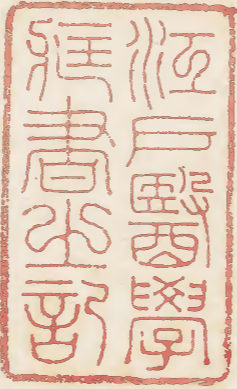 江戶醫學
藏書之記